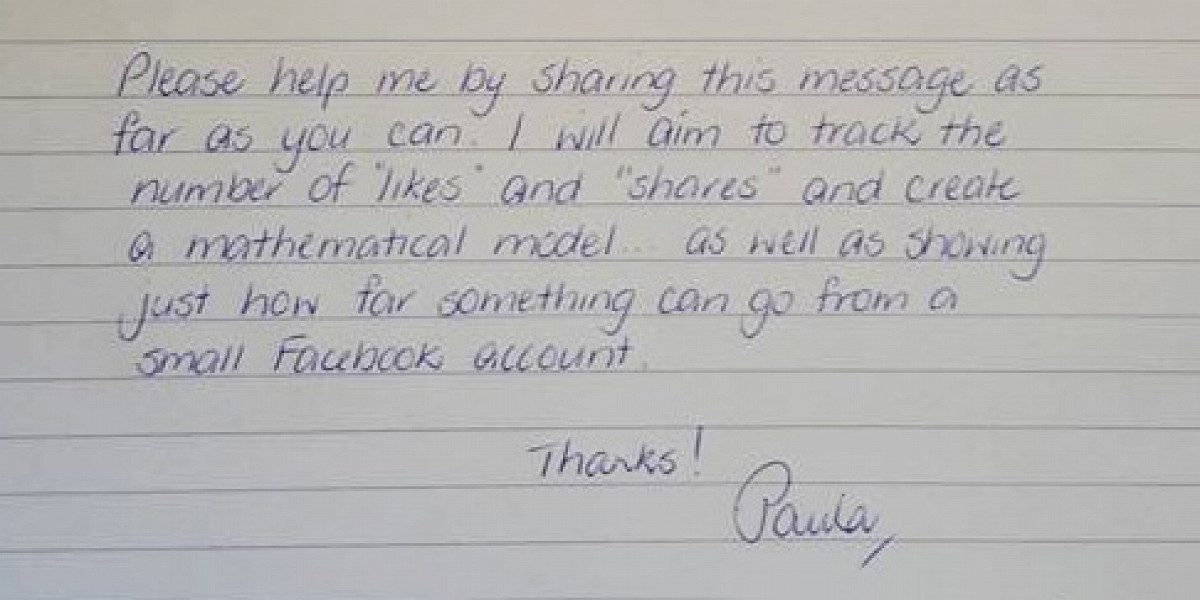 Please help me by sharing this message as
far as you can. I will aim to track the
number of "likes" and "shares" and create
a mathematical model... as well as showing
just how far something can go from a
small Facebook account.
Thanks!
Paula